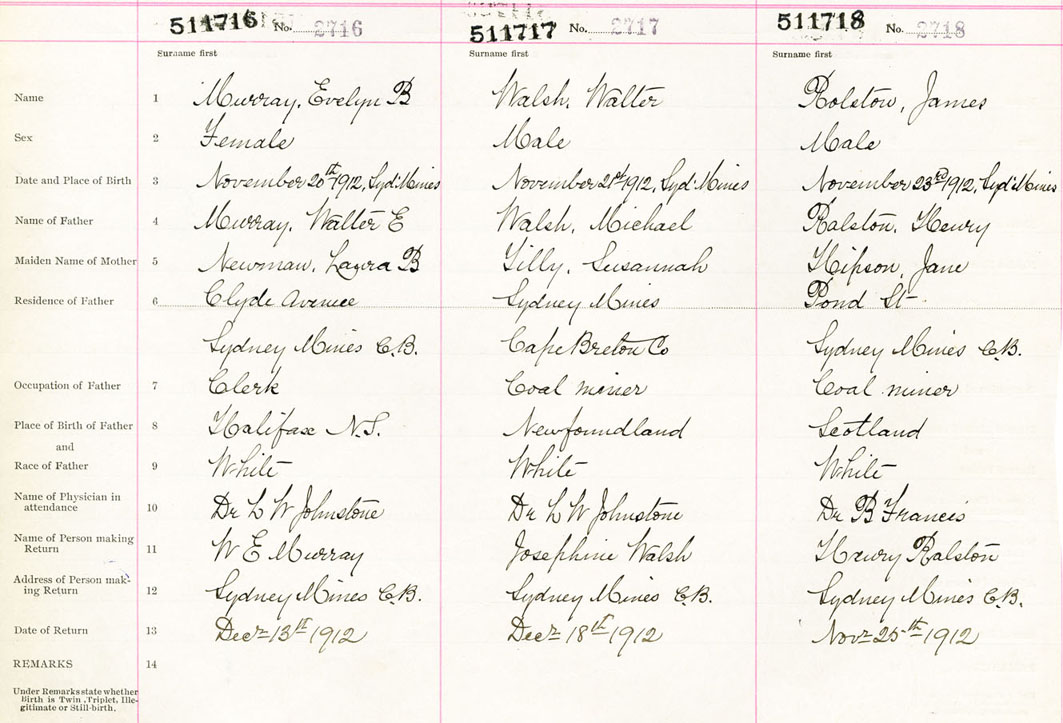 511716 No. 2716 511717 No. 2717 511718 No. 2718
Surname first Surname first Surname first
Name 1 Murray, Evelyn B Walsh, Walter Rolston, James
Sex 2 Female Male Male
Date and Place of Birth 3 November 20th 1912, Syd. Mines November 21st 1912, Syd. Mines November 23rd 1912, Syd. Mines
Name of Father 4 Murray, Walter E Walsh, Michael Ralston, Henry
Maiden Name of Mother 5 Newman, Laura B Lilly, Susannah Hipson, Jane
Residence of Father 6 Clyde Avenue Sydney Mines Pond St
Sydney Mines C.B. Cape Breton Co Sydney Mines C.B.
Occupation of Father 7 Clerk Coal miner Coal miner
Place of Birth of Father 8 Halifax N.S. Newfoundland Scotland
and
Race of Father 9 White White White
Name of Physician in
attendance 10 Dr L W Johnstone Dr L W Johnstone Dr B Francis
Name of Person making
Return 11 W E Murray Josephine Walsh Henry Ralston
Address of Person mak-
ing Return 12 Sydney Mines C.B. Sydney Mines C.B. Sydney Mines C.B.
Date of Return 13 Decr 13th 1912 Decr 18th 1912 Novr 25th 1912
REMARKS 14
Under Remarks state whether
Birth is Twin, Triplet, Ille-
gitimate or Still-birth.